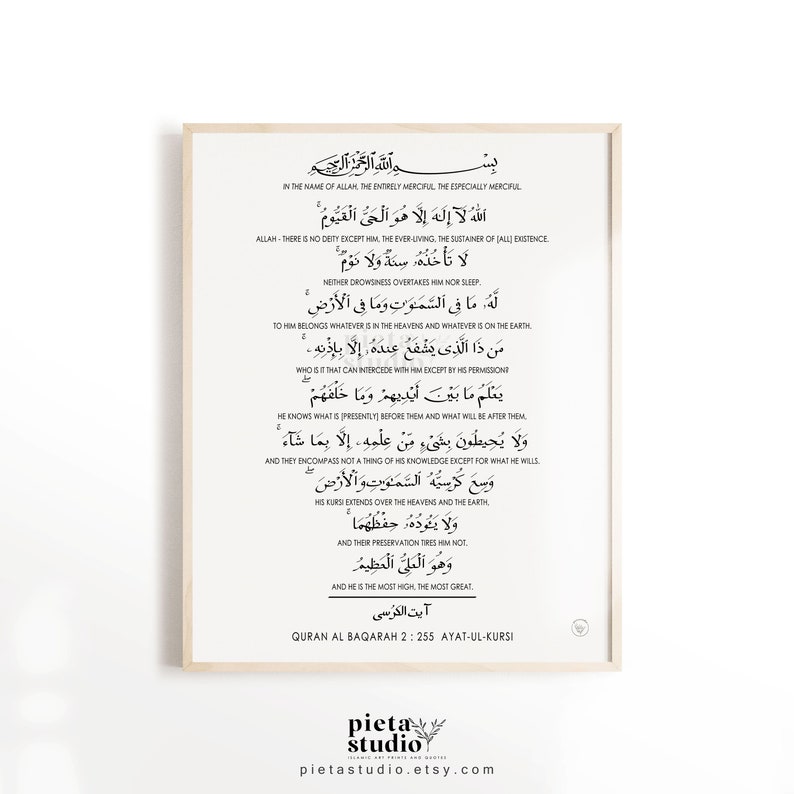 بِسْمِ اللَّهِ الرَّحْمَٰنِ الرَّحِيمِ
IN THE NAME OF ALLAH, THE ENTIRELY MERCIFUL, THE ESPECIALLY MERCIFUL.
اَللّٰهُ لَآ إِلَٰهَ إِلَّا هُوَ ٱلْحَىُّ ٱلْقَيُّومُ ۚ
ALLAH - THERE IS NO DEITY EXCEPT HIM, THE EVER-LIVING, THE SUSTAINER OF [ALL] EXISTENCE.
لَا تَأْخُذُهُۥ سِنَةٌ وَلَا نَوْمٌ ۚ
NEITHER DROWSINESS OVERTAKES HIM NOR SLEEP.
لَّهُۥ مَا فِى ٱلسَّمَٰوَٰتِ وَمَا فِى ٱلْأَرْضِ ۚ
TO HIM BELONGS WHATEVER IS IN THE HEAVENS AND WHATEVER IS ON THE EARTH.
مَن ذَا ٱلَّذِى يَشْفَعُ عِندَهُۥٓ إِلَّا بِإِذْنِهِۦ ۚ
pieta
studio
WHO IS IT THAT CAN INTERCEDE WITH HIM EXCEPT BY HIS PERMISSION?
يَعْلَمُ مَا بَيْنَ أَيْدِيهِمْ وَمَا خَلْفَهُمْ ۖ
HE KNOWS WHAT IS [PRESENTLY] BEFORE THEM AND WHAT WILL BE AFTER THEM,
وَلَا يُحِيطُونَ بِشَىْءٍ مِّنْ عِلْمِهِۦٓ إِلَّا بِمَا شَآءَ ۚ
AND THEY ENCOMPASS NOT A THING OF HIS KNOWLEDGE EXCEPT FOR WHAT HE WILLS.
وَسِعَ كُرْسِيُّهُ ٱلسَّمَٰوَٰتِ وَٱلْأَرْضَ ۖ
HIS KURSI EXTENDS OVER THE HEAVENS AND THE EARTH,
وَلَا يَـُٔودُهُۥ حِفْظُهُمَا ۚ
AND THEIR PRESERVATION TIRES HIM NOT.
وَهُوَ ٱلْعَلِىُّ ٱلْعَظِيمُ
AND HE IS THE MOST HIGH, THE MOST GREAT.
آیت الکرسی
QURAN AL BAQARAH 2 : 255 AYAT-UL-KURSI
pieta
studio
ISLAMIC ART PRINTS AND QUOTES
pietastudio.etsy.com